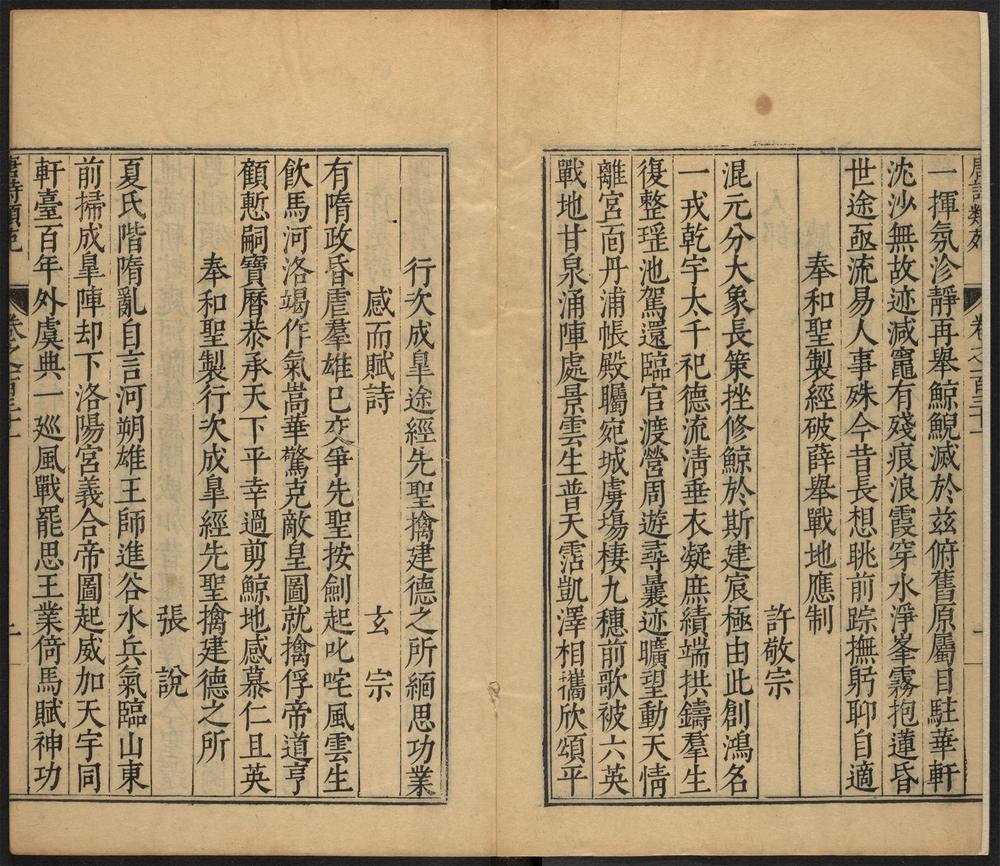 唐詩類苑 卷之一百三十一 一
一揮氛沴靜再舉鯨鯢滅於兹俯舊原屬目駐華軒
沈沙無故迹減竈有殘痕浪霞穿水淨峯霧抱蓮昏
世途亟流易人事殊今昔長想眺前踪撫躬聊自適
奉和聖製經破薛舉戰地應制
許敬宗
混元分大象長策挫修鯨於斯建宸極由此創鴻名
一戎乾宇太千祀德流清垂衣凝庶績端拱鑄羣生
復整瑶池駕還臨官渡營周遊尋曩迹曠望動天情
離宮靣丹浦帳殿矚宛城虜塲棲九穗前歌被六英
戰地甘泉涌陣處景雲生普天霑凱澤相攜欣頌平
行次成皐途經先聖擒建德之所緬思功業
感而賦詩 玄宗
有隋政昏虐羣雄已交爭先聖按劍起叱咤風雲生
飲馬河洛竭作氣嵩華驚克敵皇圖就擒俘帝道亨
顧慙嗣寶曆恭承天下平幸過剪鯨地感慕仁且英
奉和聖製行次成皐經先聖擒建德之所
張說
夏氏階隋亂自言河朔雄王師進谷水兵氣臨山東
前掃成皐陣却下洛陽宮義合帝圖起威加天宇同
軒臺百年外虞典一巡風戰罷思王業倚馬賦神功
唐詩類苑 卷之一百三十一